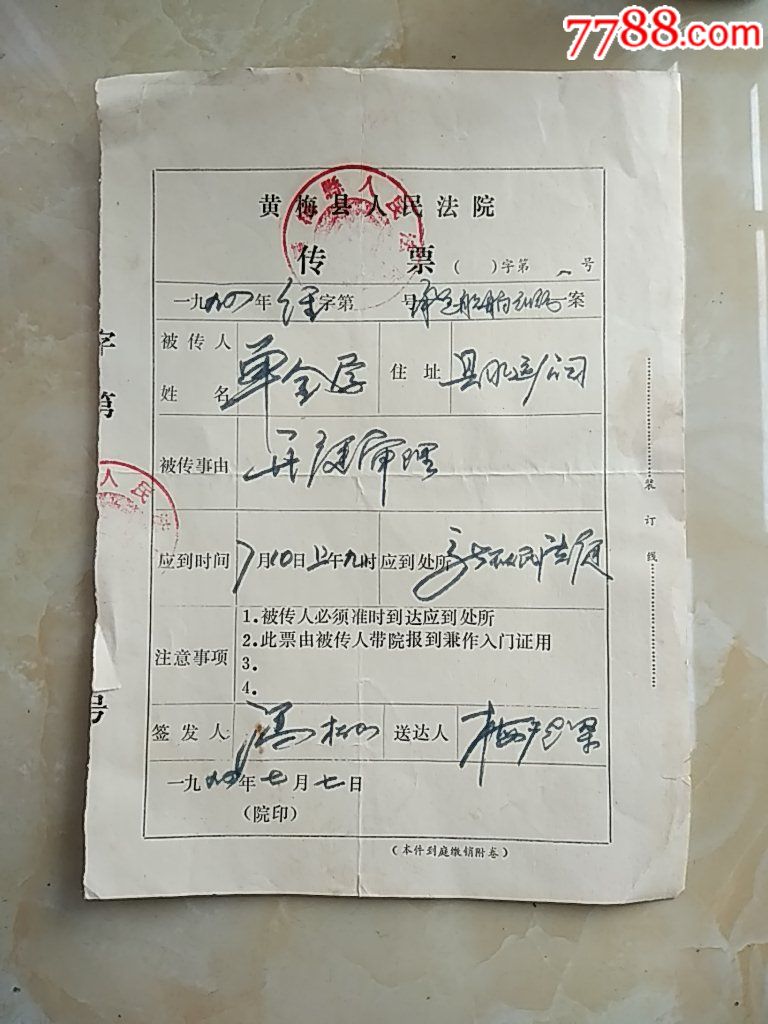 7788.com
黄梅县人民法院
传 票 ( )字第 号
一九九四年经字第 号 案
被传人姓名 单全 住址 县水运公司
被传事由 开庭审理
应到时间 7月10日上午九时 应到处所
注意事项
1.被传人必须准时到达应到处所
2.此票由被传人带院报到兼作入门证用
3.
4.
签发人 冯 送达人
一九九四年七月七日
(院印)
(本件到庭缴销附卷)
装订线
字第
号
县人民法
人民法